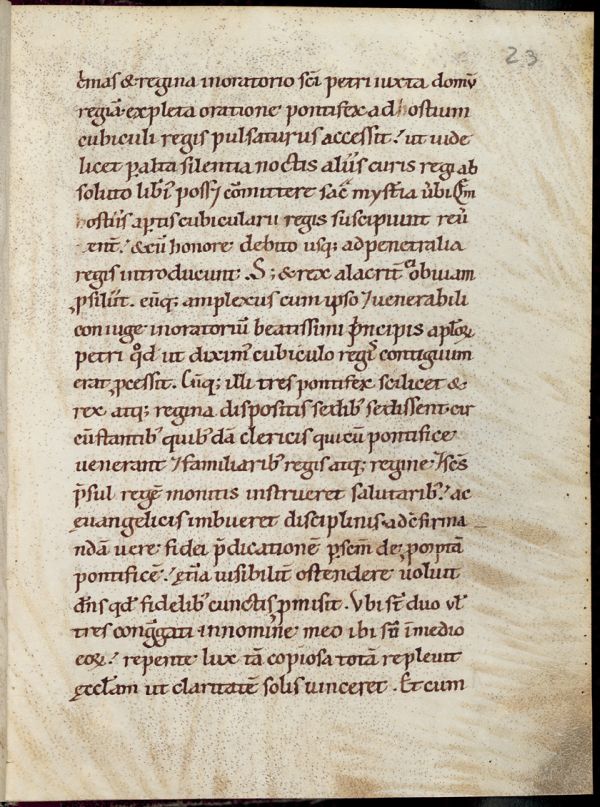 23
c̄mas & regina inoratorio sc̄i petri iuxta domū
regiā. expleta oratione pontifex ad hostium
cubiculi regis pulsaturus accessit! ut uide
licet p alta silentia noctis aliis curis regi ab
soluto lib̄i poss; cōmittere sac̄ myst̄ia ūbi
hostiis aꝑtis cubicularii regis suscipiunt reū
& cū honore debito usq; ad penetralia
regis introducunt. S; & rex alacrit̄ obuiam
ꝓsiluit. eūq; amplexus cum ipso & uenerabili
coniuge inoratoriū beatissimi p̄ncipis apl̄oꝝ
petri qd̄ ut dixim; cubiculo regis contiguum
erat ꝓcessit. Cūq; illi tres pontifex scilicet &
rex atq; regina dispositis sedib; sedissent cir
cū stantib; quib; dā clericis qui cū pontifice
uenerant & familiarib; regis atq; regine & sc̄s
p̄sul regē monitis instrueret salutarib;! ac
ęuangelicis imbueret disciplinis. ad c̄firma
ndā uere fidei p̄dicationē ꝑ sem̄ de ꝓmptā
pontificē! ętiā uisibilit̄ ostendere uoluit
dn̄s qd̄ fidelib; cunctis ꝓmisit. Vbi st̄ duo ul̄
tres congregati in nomine meo ibi sū in medio
eoꝝ! repente lux tā copiosa totā repleuit
ęccl̄am ut claritatē solis uinceret. Et cum